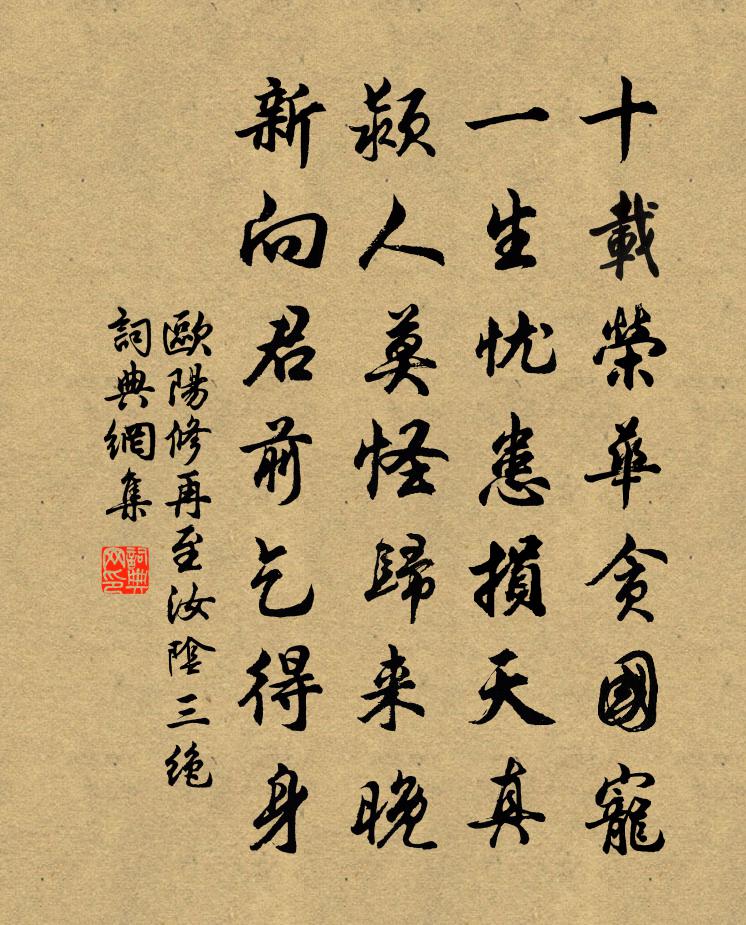 十載榮華貪國寵
一生忧患損天真
潁人莫怪歸来晚
新向君前乞得身
歐陽修再至汝陰三絶
詞典網集
詞典
网印